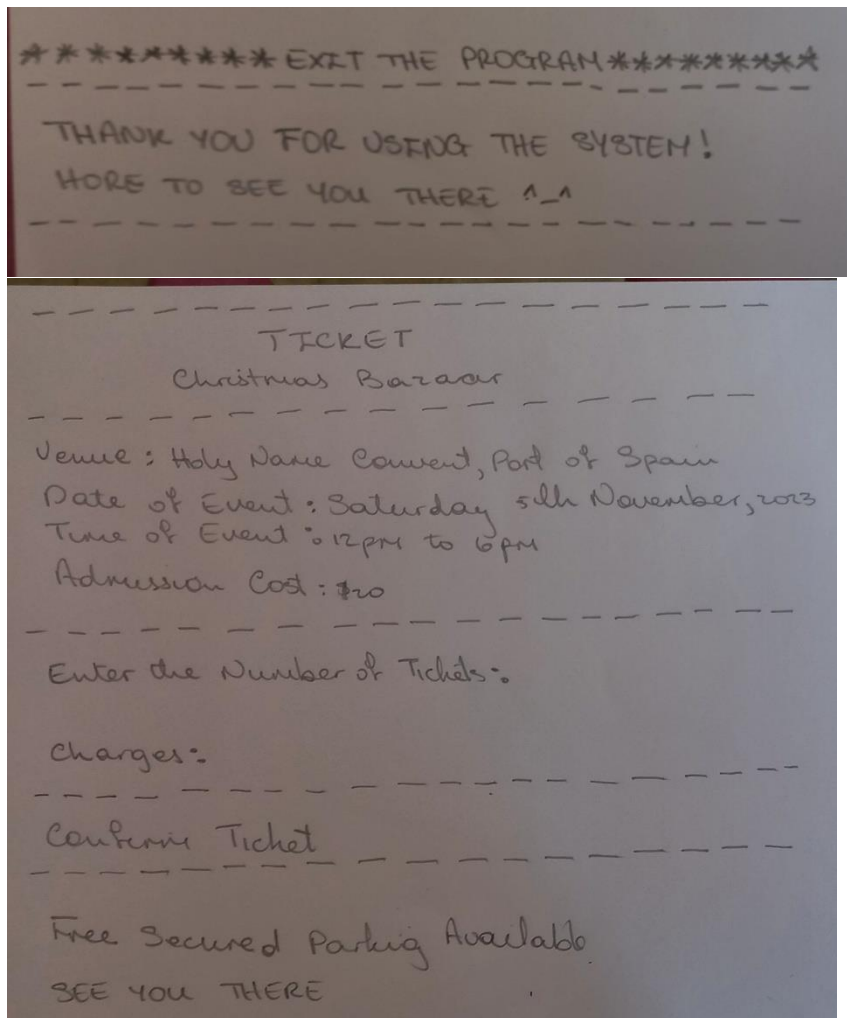 ********* EXIT THE PROGRAM *********
THANK YOU FOR USING THE SYSTEM!
HORE TO SEE YOU THERE ^_^
TICKET
Christmas Bazaar
Venue: Holy Name Convent, Port of Spain
Date of Event: Saturday 5th November, 2023
Time of Event: 12pm to 6pm
Admission Cost: $20
Enter the Number of Tickets:
Charges:
Confirm Ticket
Free Secured Parking Available
SEE YOU THERE